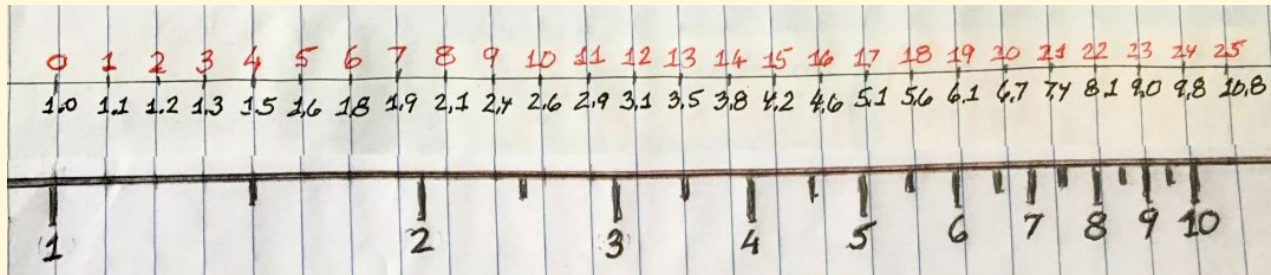 0 1 2 3 4 5 6 7 8 9 10 11 12 13 14 15 16 17 18 19 20 21 22 23 24 25
1.0 1.1 1.2 1.3 1.5 1.6 1.8 1.9 2.1 2.4 2.6 2.9 3.1 3.5 3.8 4.2 4.6 5.1 5.6 6.1 6.7 7.4 8.1 9.0 9.8 10.8
1 2 3 4 5 6 7 8 9 10